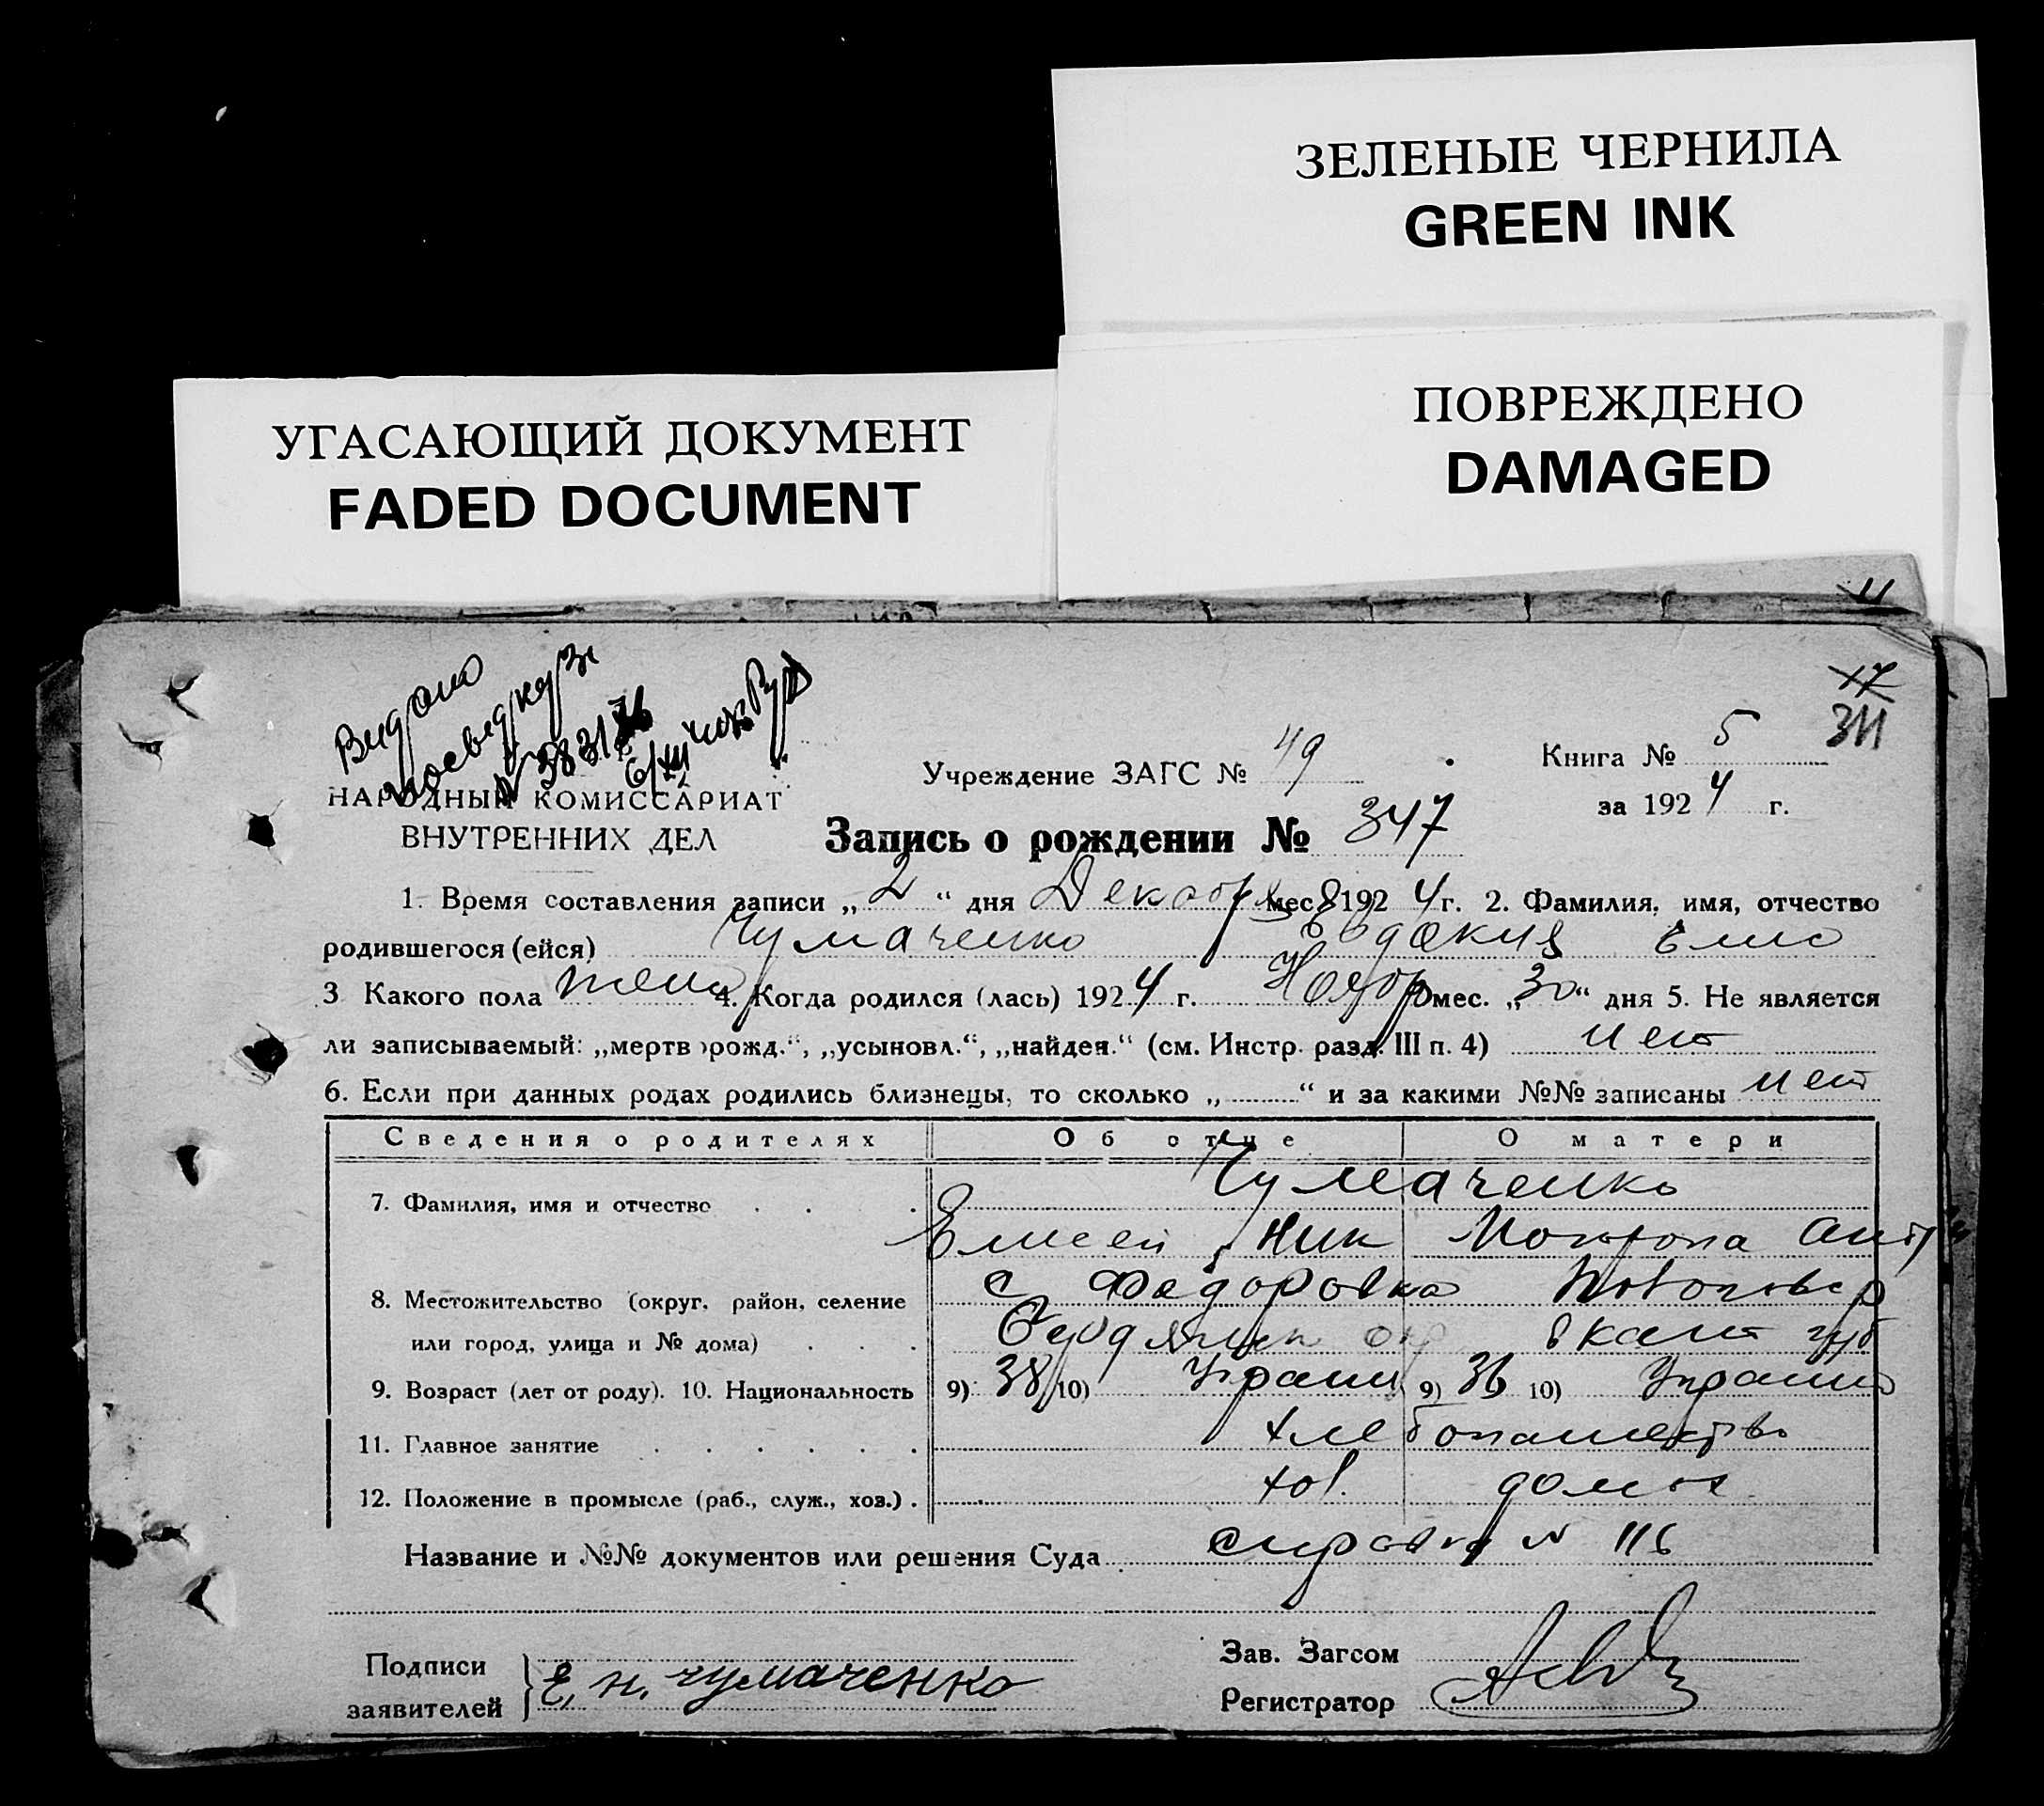 ЗЕЛЕНЫЕ ЧЕРНИЛА
GREEN INK
УГАСАЮЩИЙ ДОКУМЕНТ
FADED DOCUMENT
ПОВРЕЖДЕНО
DAMAGED
11
17
311
Видано
N 383136
НАРОДНЫЙ КОМИССАРИАТ
ВНУТРЕННИХ ДЕЛ
Учреждение ЗАГС № 49
Книга № 5
за 1924 г.
Запись о рождении № 347
1. Время составления записи „2“ дня Декабря мес 1924 г. 2. Фамилия, имя, отчество
родившегося (ейся) Чумаченко Евдокия Елис
3 Какого пола жен 4. Когда родился (лась) 1924 г. Ноябр мес. „30“ дня 5. Не является
ли записываемый: „мертворожд.“, „усыновл.“, „найден.“ (см. Инстр. разд. III п. 4) нет
6. Если при данных родах родились близнецы, то сколько „.........“ и за какими №№ записаны нет
Сведения о родителях Об отце О матери
7. Фамилия, имя и отчество Чумаченко
Елисей Ник Мотрона
8. Местожительство (округ, район, селение с Федоровка
или город, улица и № дома) Бердянск окр Екат губ
9. Возраст (лет от роду). 10. Национальность 9) 38 10) Украин 9) 36 10) Украин
11. Главное занятие хлебопашество
12. Положение в промысле (раб., служ., хоз.) хоз. домох
Название и №№ документов или решения Суда справка N 116
Подписи
заявителей
Е. Н. Чумаченко
Зав. Загсом
Регистратор